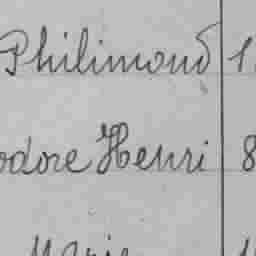 Philimond 1
odore Henri 8
Marie